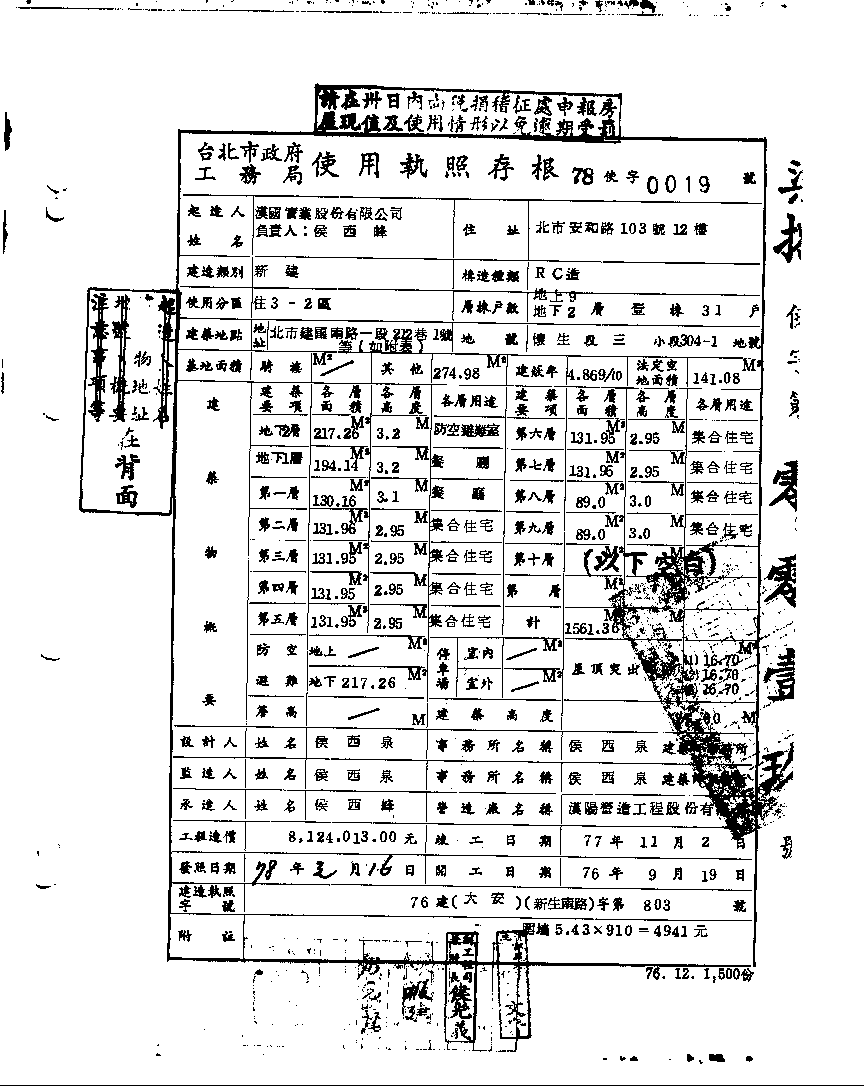 請在卅日內向稅捐稽征處申報房
屋現值及使用情形以免逾期受罰
台北市政府
工務局 使用執照存根 78 使字 0019 號
起造人姓名 漢國實業股份有限公司 負責人：侯西峰 住址 北市安和路103號12樓
建造類別 新建 構造種類 RC造
使用分區 住3-2區 層棟戶數 地上9 地下2 層 壹 棟 31 戶
建築地點 地址 北市建國南路一段212巷1號等(如附表) 地號 懷生段三小段304-1地號
基地面積 騎樓 M² ／ 其他 274.98 M² 建蔽率 4.869/10 法定空地面積 141.08 M²
建築物概要
建築要項 各層面積 各層高度 各層用途 建築要項 各層面積 各層高度 各層用途
地下2層 217.26 M² 3.2 M 防空避難室 第六層 131.95 M² 2.95 M 集合住宅
地下1層 194.14 M² 3.2 M 餐廳 第七層 131.95 M² 2.95 M 集合住宅
第一層 130.16 M² 3.1 M 餐廳 第八層 89.0 M² 3.0 M 集合住宅
第二層 131.96 M² 2.95 M 集合住宅 第九層 89.0 M² 3.0 M 集合住宅
第三層 131.95 M² 2.95 M 集合住宅 第十層 (以下空白)
第四層 131.95 M² 2.95 M 集合住宅 第 層
第五層 131.95 M² 2.95 M 集合住宅 計 1561.36 M²
防空避難 地上 ／ M² 停車場 室內 ／ M² 屋頂突出 (1)16.70 M²
地下 217.26 M² 室外 ／ M² 16.70
16.70
簷高 ／ M 建築高度 M
設計人 姓名 侯西泉 事務所名稱 侯西泉建築 所
監造人 姓名 侯西泉 事務所名稱 侯西泉建築
承造人 姓名 侯西峰 營造廠名稱 漢陽營造工程股份有
工程造價 8,124.013.00 元 竣工日期 77年11月2日
發照日期 78年 月16日 開工日期 76年9月19日
建造執照字號 76建(大安)(新生南路)字第 803 號
附註 圍墻 5.43×910=4941元
76.12.1,500份
起造人姓名
物地址
地號
注意事項等
在背面
使字第
零零壹玖
號